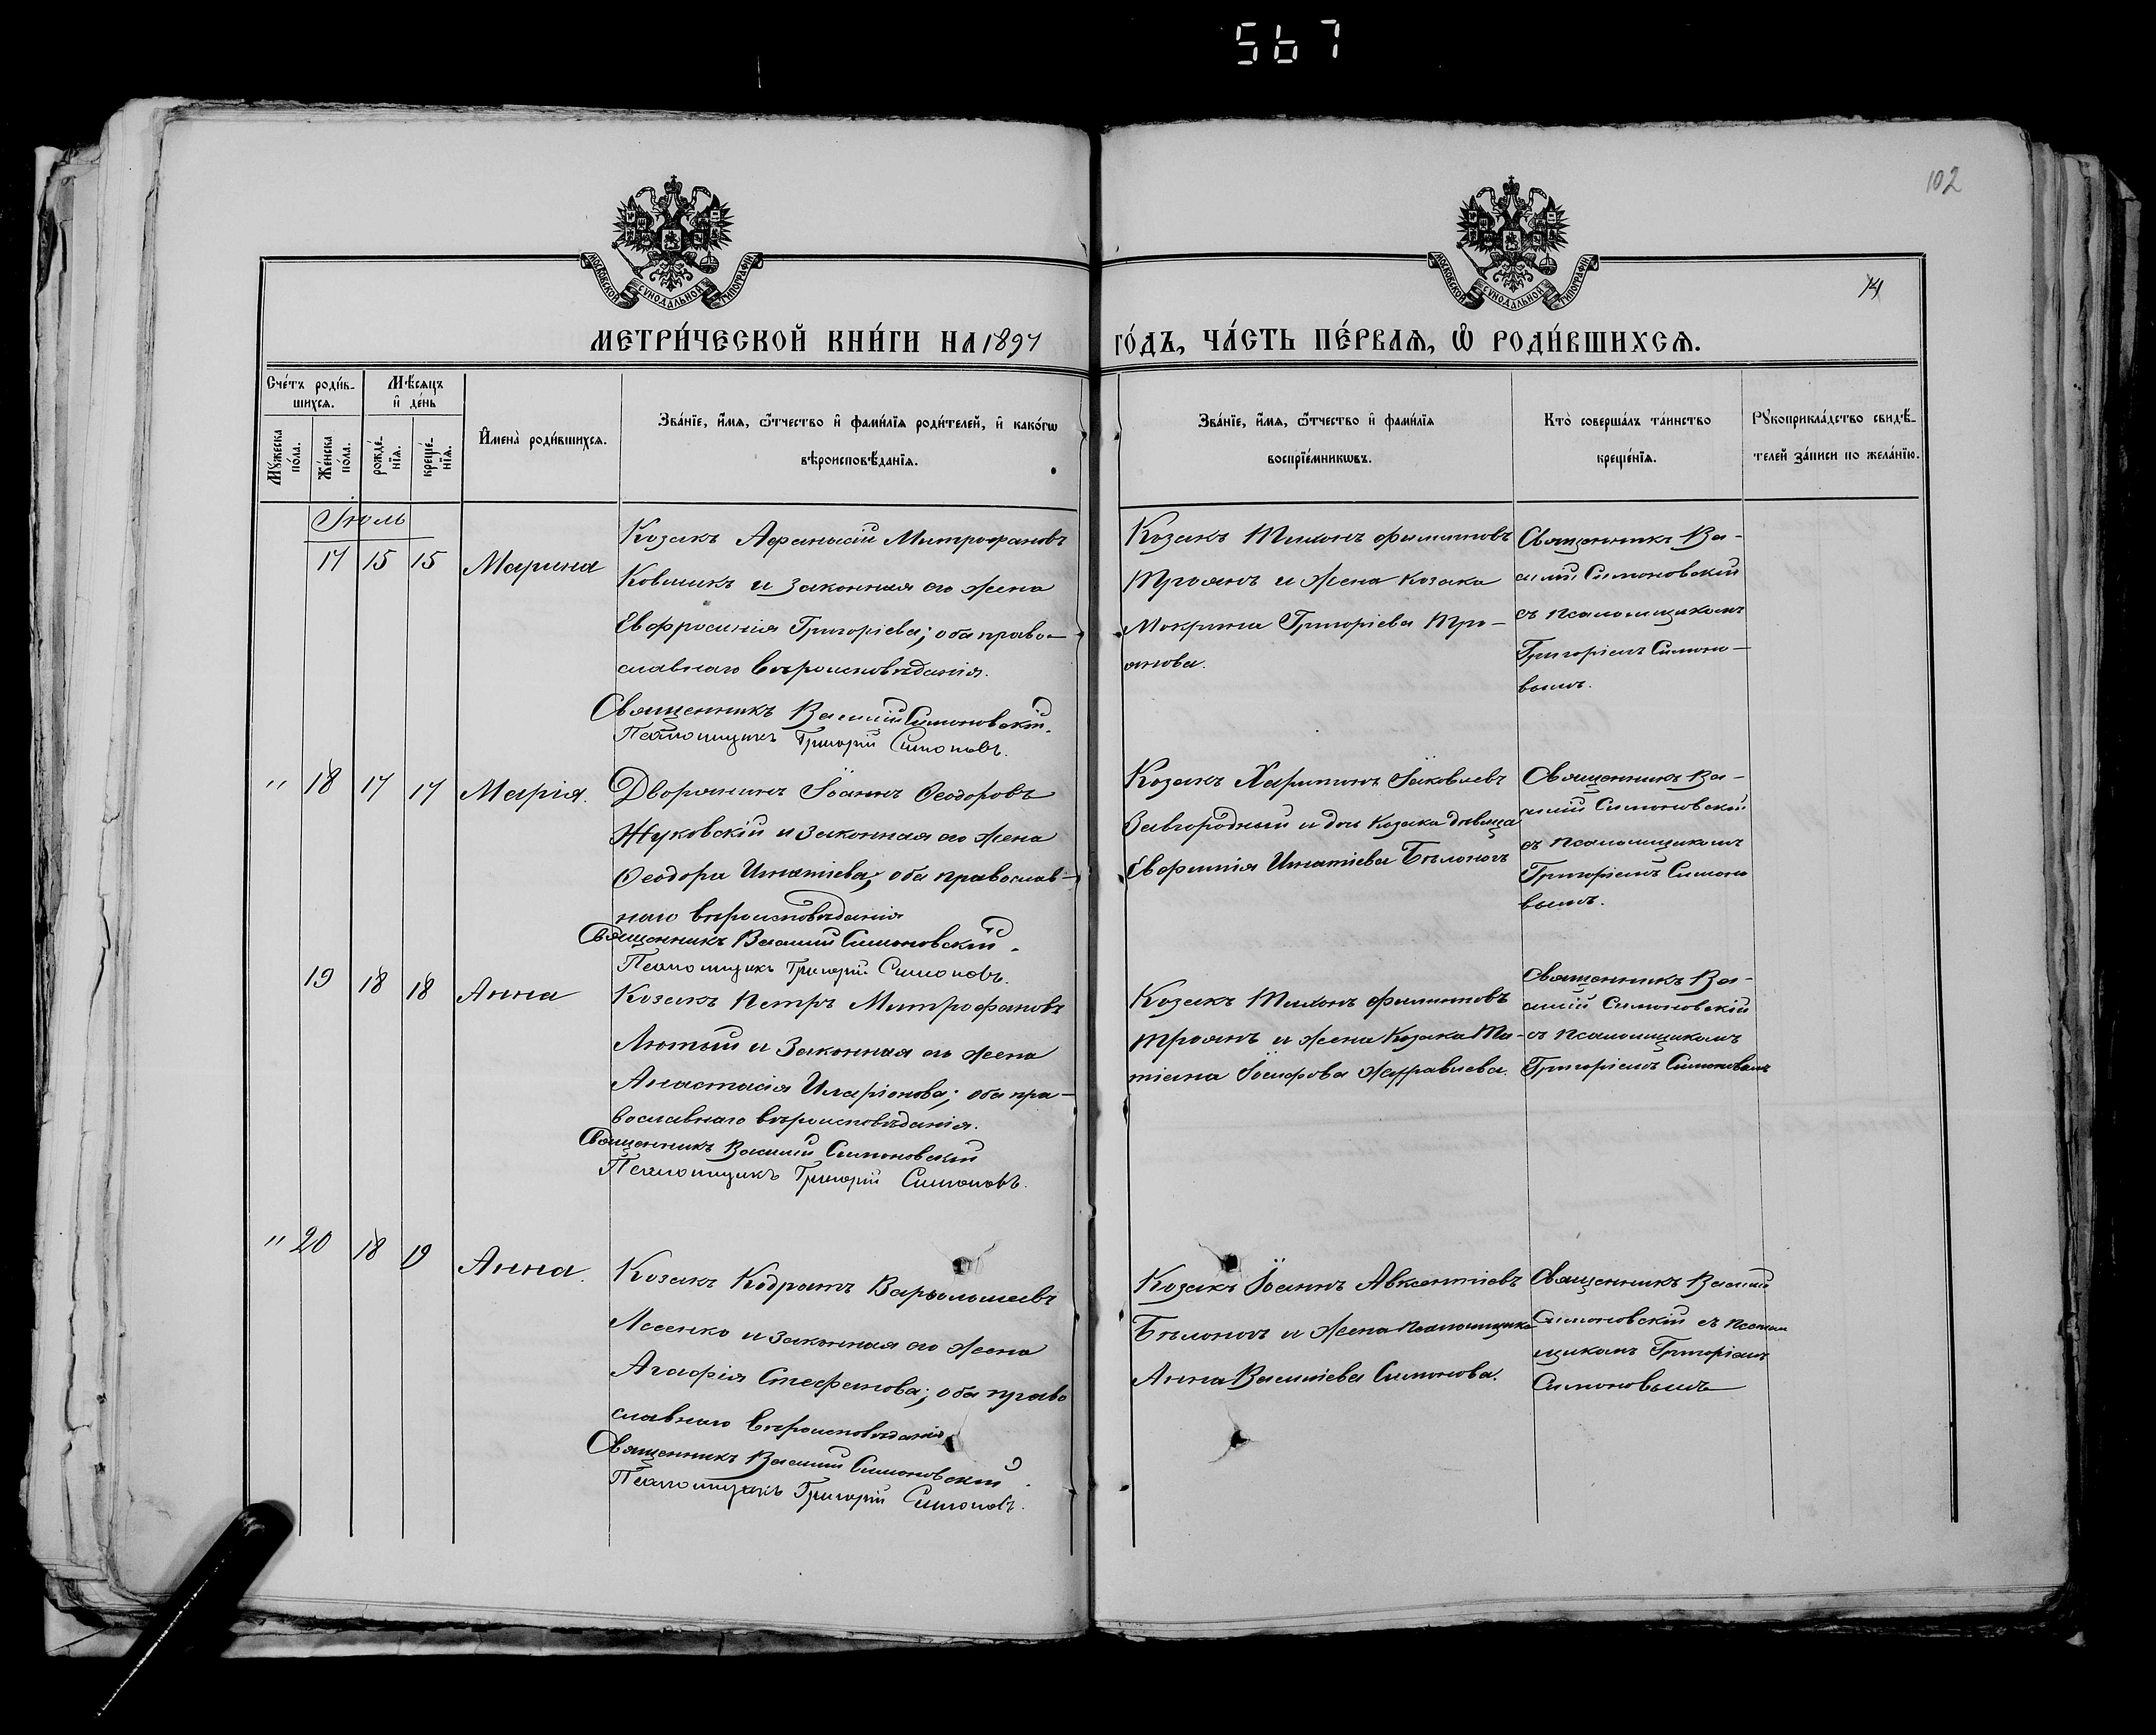 567
102
74
МОСКОВСКОЙ СѴНОДАЛЬНОЙ ТИПОГРАФІИ
МОСКОВСКОЙ СѴНОДАЛЬНОЙ ТИПОГРАФІИ
МЕТРИ́ЧЕСКОЙ КНИ́ГИ НА 1897 ГО́ДЪ, ЧА́СТЬ ПЕ́РВАѦ, Ѡ҆ РОДИ́ВШИХСѦ.
Сче́тъ роди́в-
шихсѧ.
Мꙋ́жеска по́ла.
Же́нска по́ла.
Мѣ́сѧцъ
и҆ де́нь
рожде́-
нїѧ.
креще́-
нїѧ.
И҆мена̀ роди́вшихсѧ.
Зва́нїе, и҆́мѧ, ѻ҆́тчество и҆ фами́лїѧ роди́телей, и҆ како́гѡ
вѣроисповѣ́данїѧ.
Зва́нїе, и҆́мѧ, ѻ҆́тчество и҆ фами́лїѧ
воспрїе́мникѡвъ.
Кто̀ соверша́лъ та́инство
креще́нїѧ.
Рꙋкоприкла́дство свидѣ́-
телей за́писи по жела́нїю.
Іюль
17 15 15 Марина
Козакъ Афанасій Митрофановъ
Ковшикъ и законная его жена
Евфросинія Григоріева; оба право-
славнаго вѣроисповѣданія.
Священникъ Василій Симоновскій.
Псаломщикъ Григорій Симоновъ.
Козакъ Тихонъ Филипповъ
Троянъ и жена козака
Мокрина Григоріева Тро-
янова.
Священникъ Ва-
силій Симоновскій
съ псаломщикомъ
Григоріемъ Симоно-
вымъ.
" 18 17 17 Марія.
Дворянинъ Іоаннъ Ѳеодоровъ
Жуковскій и законная его жена
Ѳеодора Игнатіева; оба православ-
наго вѣроисповѣданія
Священникъ Василій Симоновскій.
Псаломщикъ Григорій Симоновъ.
Козакъ Харитонъ Іаковлевъ
Завгородный и дочь козака дѣвица
Евфимія Игнатіева Бѣлоногъ
Священникъ Ва-
силій Симоновскій
съ псаломщикомъ
Григоріемъ Симоно
вымъ.
19 18 18 Анна
Козакъ Петръ Митрофановъ
Лютый и законная его жена
Анастасія Иларіонова; оба пра-
вославнаго вѣроисповѣданія.
Священникъ Василій Симоновскій
Псаломщикъ Григорій Симоновъ.
Козакъ Тихонъ Филипповъ
Троянъ и жена козака Та-
тіана Іосифова Журавлева.
Священникъ Ва-
силій Симоновскій
съ псаломщикомъ
Григоріемъ Симоновымъ
" 20 18 19 Анна.
Козакъ Кодратъ Варѳоломеевъ
и законная его жена
Агафія Стефанова; оба право
славнаго вѣроисповѣданія.
Священникъ Василій Симоновскій.
Псаломщикъ Григорій Симоновъ.
Козакъ Іоаннъ Авксентіевъ
Бѣлоногъ и жена псаломщика
Анна Василіева Симонова.
Священникъ Василій
Симоновскій съ псалом
щикомъ Григоріемъ
Симоновымъ